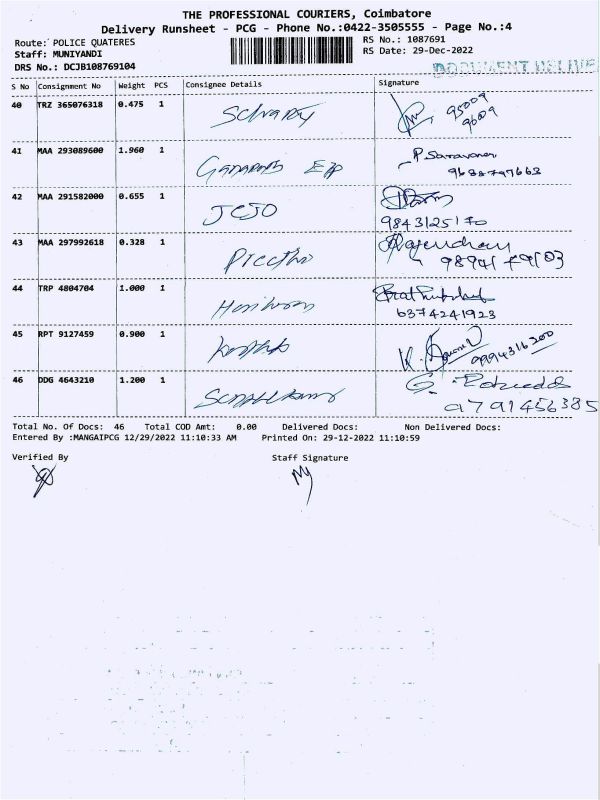 THE PROFESSIONAL COURIERS, Coimbatore
Delivery Runsheet - PCG - Phone No.:0422-3505555 - Page No.:4
Route: POLICE QUATERES
RS No.: 1087691
Staff: MUNIYANDI
RS Date: 29-Dec-2022
DRS No.: DCJB108769104
DOCUMENT DELIVE
S No Consignment No Weight PCS Consignee Details Signature
40 TRZ 365076318 0.475 1
41 MAA 293089600 1.960 1 P. Saravanan
9688797663
42 MAA 291582000 0.655 1 JCJO
9843125170
43 MAA 297992618 0.328 1 Preetha Rajendran
9894179103
44 TRP 4804704 1.000 1
6374241923
45 RPT 9127459 0.900 1 K. 9994316200
46 DDG 4643210 1.200 1 G.
9791456385
Total No. Of Docs: 46 Total COD Amt: 0.00 Delivered Docs: Non Delivered Docs:
Entered By :MANGAIPCG 12/29/2022 11:10:33 AM Printed On: 29-12-2022 11:10:59
Verified By Staff Signature